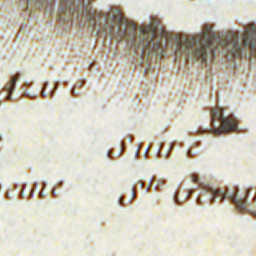 Aziré
Suire
eine
Ste Gem